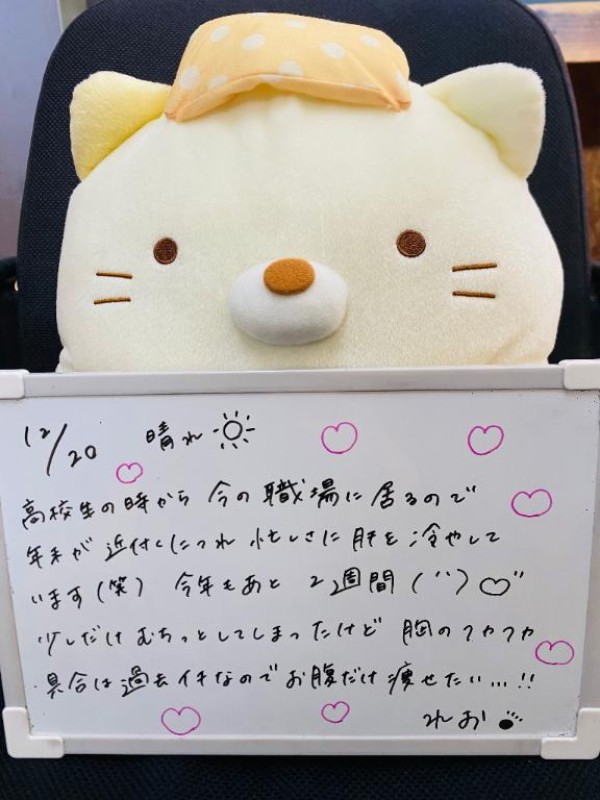 12/20 晴れ
高校生の時から 今の職場に居るので
年末が 近付くにつれ 忙しさに 肝を 冷やして
います(笑) 今年もあと 2週間
少しだけ むちっとしてしまったけど 胸のフカフカ
具合は過去イチなので お腹だけ 痩せたい...!!
れお